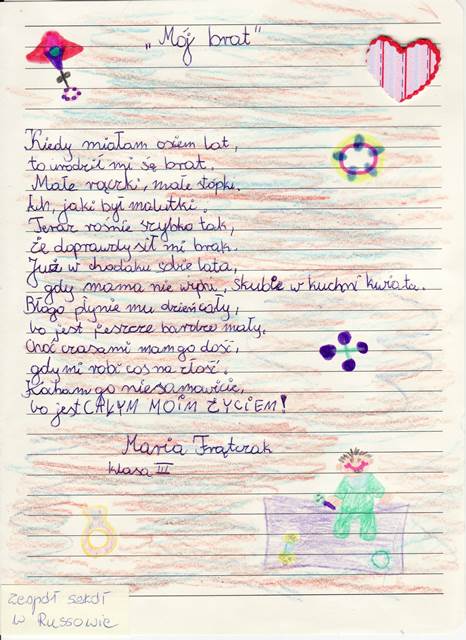 „Mój brat"
Kiedy miałam osiem lat,
to urodził mi się brat.
Małe rączki, małe stópki.
Ach, jaki był malutki.
Teraz rośnie szybko tak,
że doprawdy sił mi brak.
Już w chodaku sobie lata,
gdy mama nie widzi, skubie w kuchni kwiata.
Błogo płynie mu dzień cały,
bo jest jeszcze bardzo mały.
Choć czasami mam go dość,
gdy mi robi coś na złość.
Kocham go niesamowicie,
bo jest CAŁYM MOIM ŻYCIEM!
Maria Frątczak
klasa III
Zespół szkół
w Russowie